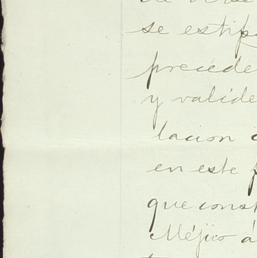 se estip
precede
y valide
lacion
en este
que const
Méjico á